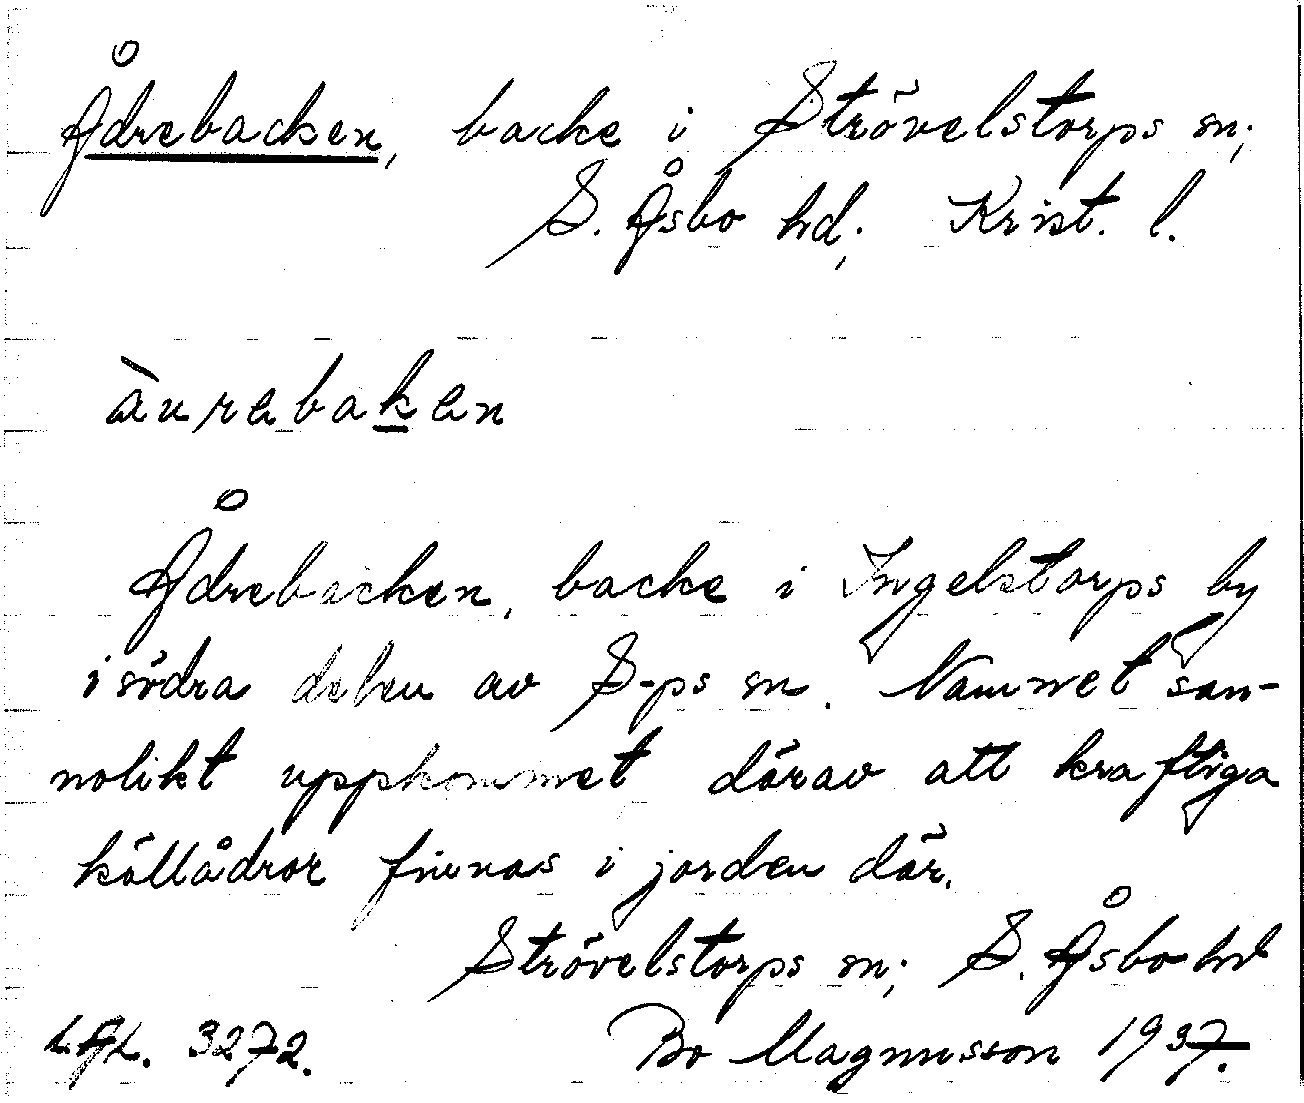 Ådrebacken, backe i Strövelstorps sn;
S. Åsbo hd; Krist. l.
àurebaken
Ådrebacken, backe i Ingelstorps by
i södra delen av S-ps sn. Namnet san-
nolikt uppkommet därav att kraftiga
källådror finnas i jorden där.
Strövelstorps sn; S. Åsbo hd
LAL. 3272. Bo Magnusson 1937.